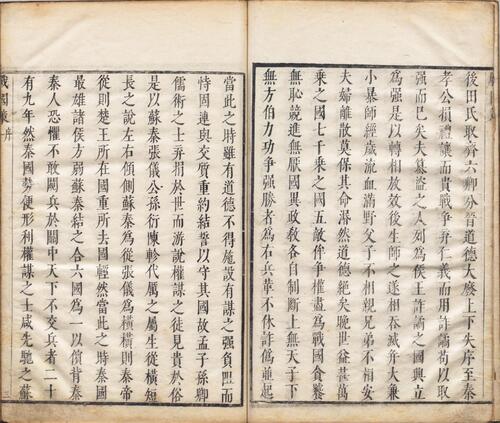 後田氏取齊六卿分晉道德大廢上下失序至秦
孝公捐禮讓而貴戰爭弃仁義而用詐譎苟以取
强而已矣夫篡盜之人列為侯王詐譎之國興立
為强是以轉相放效後生師之遂相吞滅并大兼
小暴師經歲流血滿野父子不相親兄弟不相安
夫婦離散莫保其命湣然道德絶矣晚世益甚萬
乘之國七千乘之國五敵侔爭權盡為戰國貪饕
無恥競進無厭國異政教各自制斷上無天子下
無方伯力功爭强勝者為右兵革不休詐偽並起
當此之時雖有道德不得施設有謀之强負阻而
恃固連與交質重約結誓以守其國故孟子孫卿
儒術之士弃捐於世而游說權謀之徒見貴於俗
是以蘇秦張儀公孫衍陳軫代厲之屬生從橫短
長之說左右傾側蘇秦為從張儀為橫橫則秦帝
從則楚王所在國重所去國輕然當此之時秦國
最雄諸侯方弱蘇秦結之合六國為一以儐背秦
秦人恐懼不敢闚兵於關中天下不交兵者二十
有九年然秦國勢便形利權謀之士咸先馳之蘇
戰國策